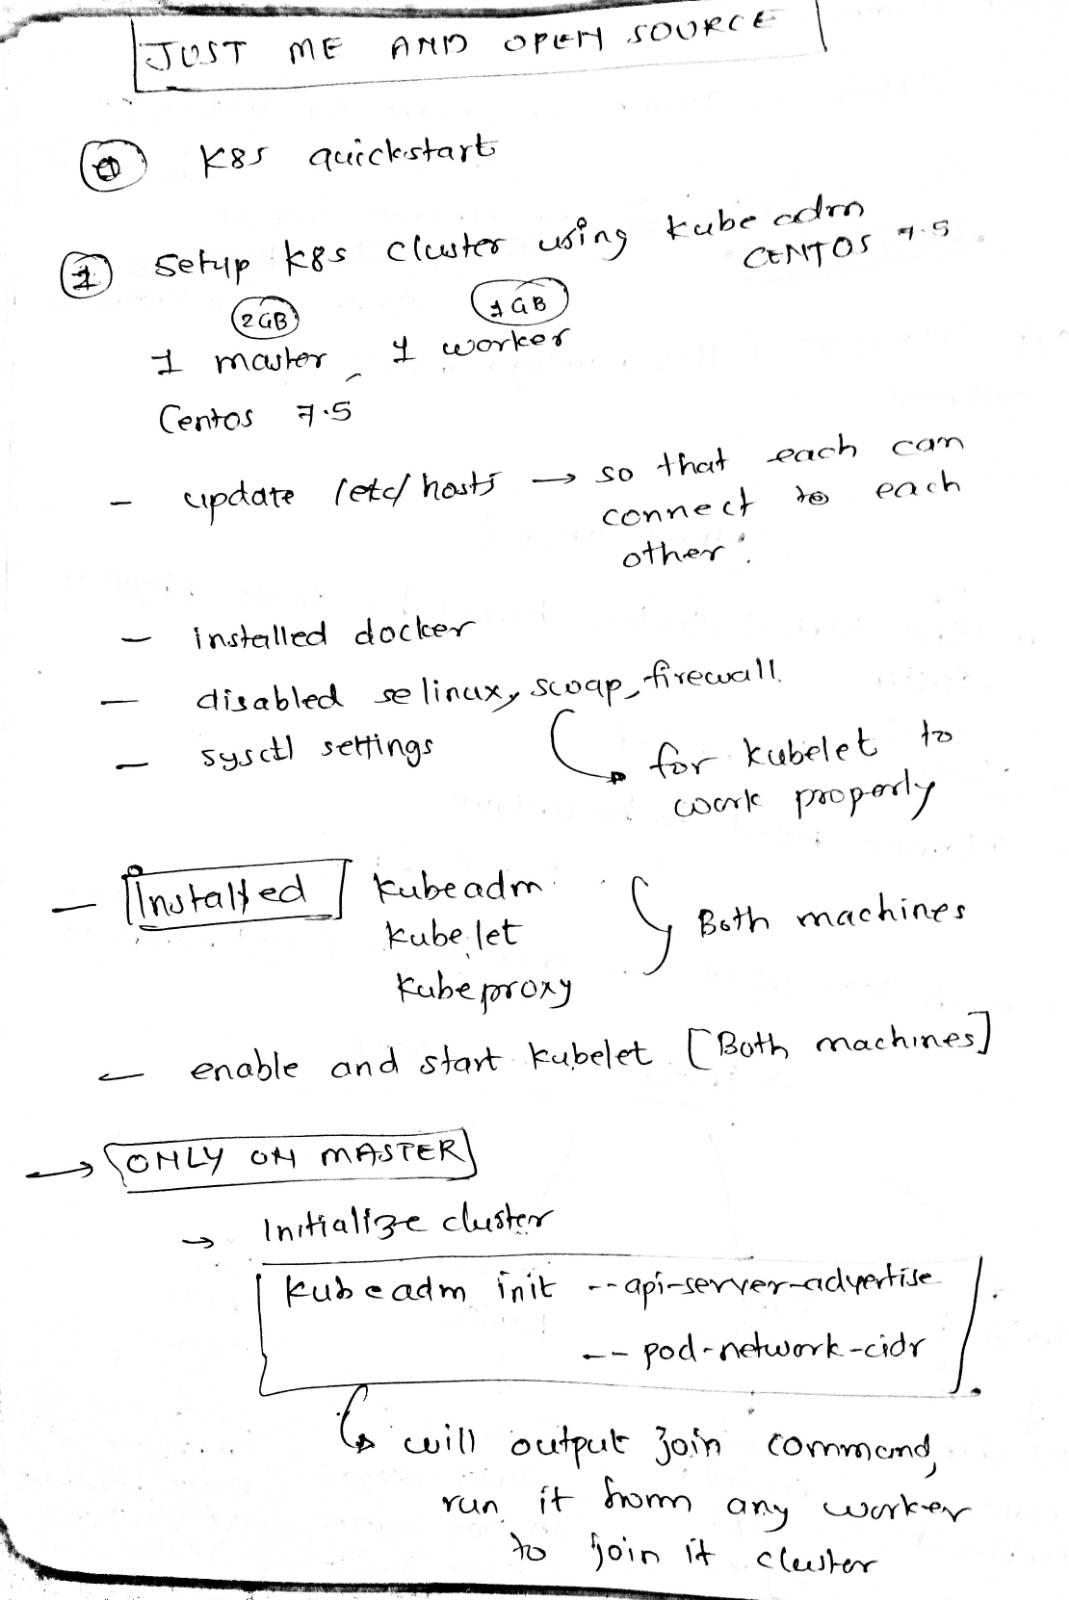 JUST ME AND OPEN SOURCE
0 K8s quickstart
1 Setup k8s cluster using kube adm
CENTOS 7.5
2GB 1GB
1 master, 1 worker
Centos 7.5
- update /etc/hosts → so that each can
connect to each
other.
- installed docker
- disabled selinux, swap, firewall.
- sysctl settings
↳ for kubelet to
work properly
- Installed kubeadm
kubelet
kubeproxy
Both machines
- enable and start kubelet [Both machines]
→ ONLY ON MASTER
→ Initialize cluster
kubeadm init --api-server-advertise
-- pod-network-cidr
↳ will output join command,
run it from any worker
to join it cluster